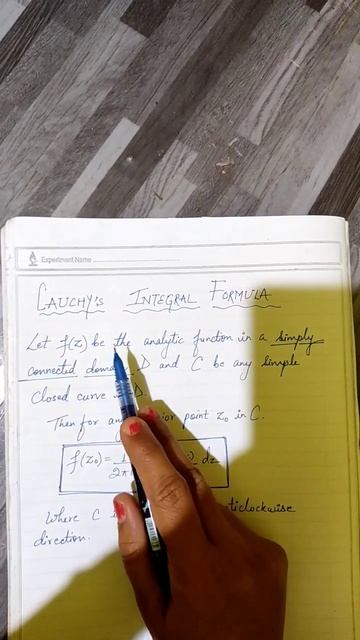 Experiment Name
CAUCHY'S INTEGRAL FORMULA
Let f(z) be the analytic function in a simply
connected D and C be any simple
closed curve D.
Then for point z₀ in C.
f(z₀) = dz
Where C
direction.